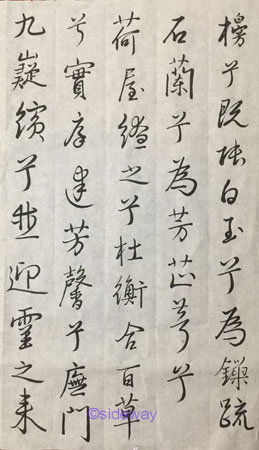 櫋兮既張白玉兮為鎮疏
石蘭兮為芳芷葺兮
荷屋繚之兮杜衡合百草
兮實庭建芳馨兮廡門
九嶷繽兮並迎靈之來
©sideway